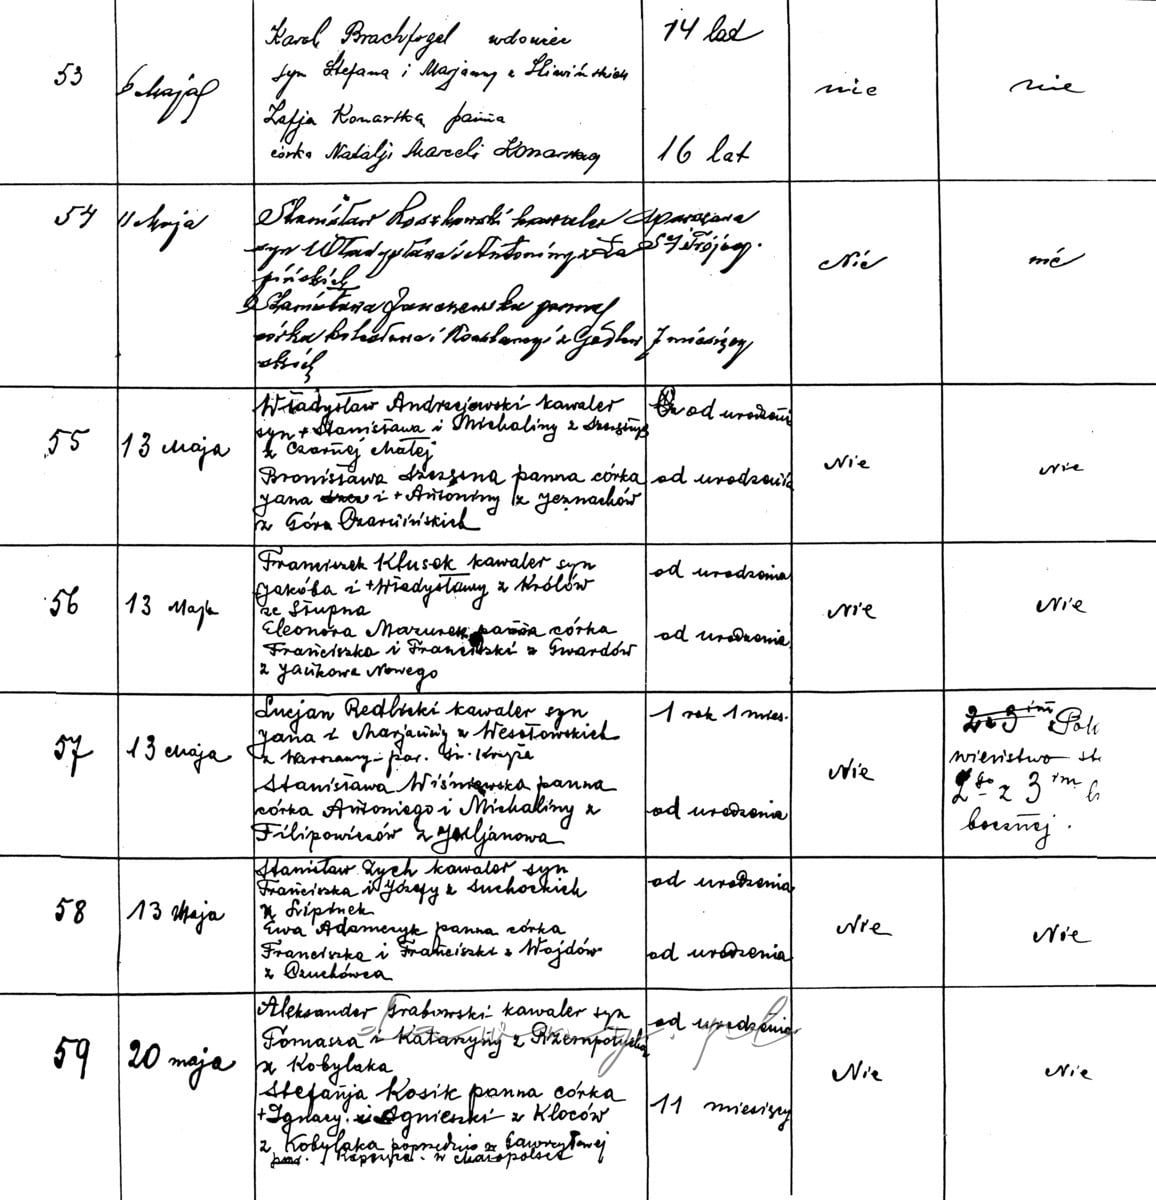 53
6 Maja
Karol Brachfogel wdowiec
syn Stefana i Marjanny z Śliwińskich
Zofja Konarska panna
córka Natalji Marceli Konarskiej
14 lad
16 lat
nie
nie
54
11 Maja
Stanisław Koszkowski kawaler
syn Władysława i Antoniny z Ła
pińskich
Stanisława Janczewska panna
córka Bolesława i Konstancji z
skich
7 miesięcy
Nie
nié
55
13 Maja
Władysław Andrzejowski kawaler
syn + Stanisława i Michaliny z
z Czarnej Małej
Bronisława Szeszena panna córka
Jana i + Antoniny z Jeznachów
z Góra
od urodzeni
od urodzenia
Nie
Nie
56
13 Maja
Franciszek Kłusek kawaler syn
Jakóba i + Władysławy z Królów
ze Słupna
Eleonora Mazurek panna córka
Franciszka i Franciszki z Gwardów
z Jankowa Nowego
od urodzenia
od urodzenia
Nie
Nie
57
13 Maja
Lucjan Redlicki kawaler syn
Jana i Marjanny z Wesełowskich
z Warszawy - par. Św. Krzyża
Stanisława Wiśniewska panna
córka Antoniego i Michaliny z
Filipowiczów z Juljanowa
1 rok 1 mies.
od urodzenia
Nie
2 z 3 im Pok
wieństwo st
2 go z 3 im
bocznej.
58
13 Maja
Stanisław Zych kawaler syn
Franciszka i Józefy z Suchockich
z Lipinek
Ewa Adamczyk panna córka
Franciszka i Franciszki z Wojdów
z Ozuchówca
od urodzenia
od urodzenia
Nie
Nie
59
20 maja
Aleksander Grabowski kawaler syn
Tomasza i Katarzyny z
z Kobylaka
Stefanja Kosik panna córka
+ Ignacy i Agnieszki z Kloców
z Kobylaka poprzednio
par. w Małopolsce
od urodzenia
11 miesięcy
Nie
Nie